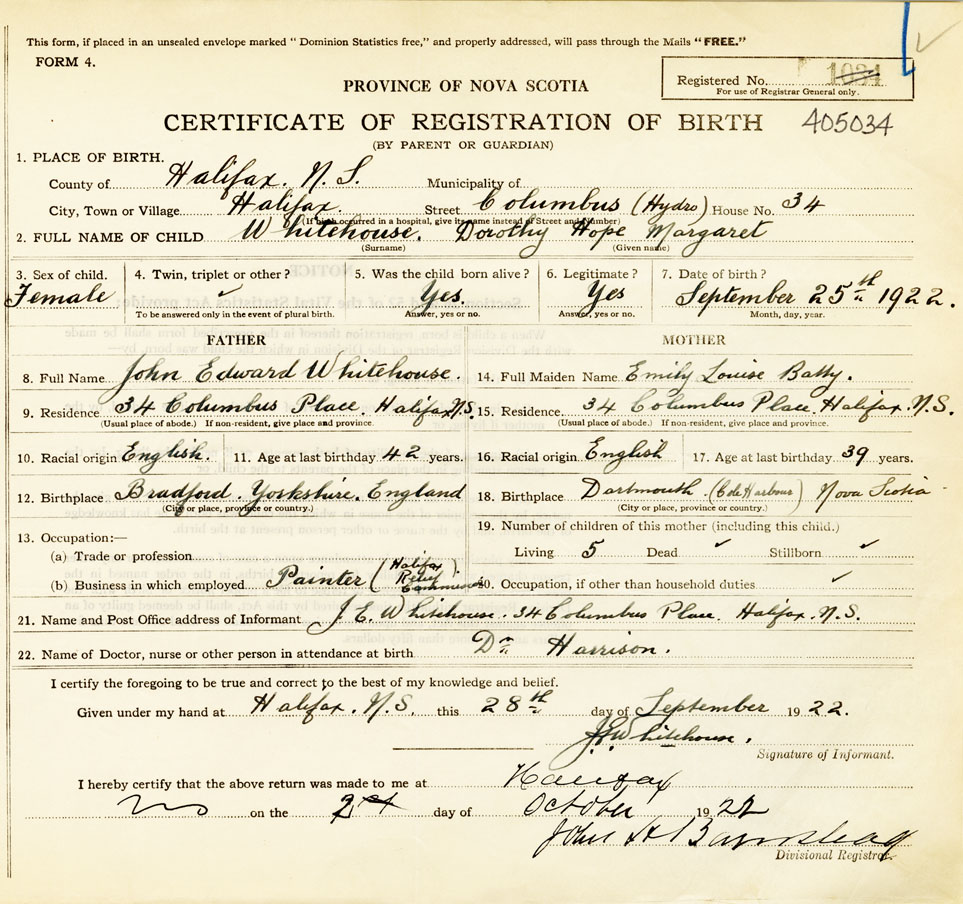 This form, if placed in an unsealed envelope marked "Dominion Statistics free," and properly addressed, will pass through the Mails "FREE."
FORM 4.
Registered No. 1034
For use of Registrar General only.
PROVINCE OF NOVA SCOTIA
CERTIFICATE OF REGISTRATION OF BIRTH 405034
(BY PARENT OR GUARDIAN)
1. PLACE OF BIRTH.
County of Halifax. N. S. Municipality of
City, Town or Village Halifax. Street Columbus (Hydro) House No. 34
(If birth occurred in a hospital, give its name instead of Street and Number)
2. FULL NAME OF CHILD Whitehouse. Dorothy Hope Margaret
(Surname) (Given name)
3. Sex of child. 4. Twin, triplet or other? 5. Was the child born alive? 6. Legitimate? 7. Date of birth?
Female ✓ Yes. Yes September 25th 1922.
To be answered only in the event of plural birth. Answer, yes or no. Answer, yes or no. Month, day, year.
FATHER MOTHER
8. Full Name John Edward Whitehouse. 14. Full Maiden Name Emily Louise Batty.
9. Residence 34 Columbus Place. Halifax N.S. 15. Residence 34 Columbus Place. Halifax. N.S.
(Usual place of abode.) If non-resident, give place and province. (Usual place of abode.) If non-resident, give place and province.
10. Racial origin English. 11. Age at last birthday 42 years. 16. Racial origin English 17. Age at last birthday 39 years.
12. Birthplace Bradford. Yorkshire. England 18. Birthplace Dartmouth. (Cole Harbour) Nova Scotia
(City or place, province or country.) (City or place, province or country.)
13. Occupation:— 19. Number of children of this mother (including this child.)
(a) Trade or profession Living 5 Dead ✓ Stillborn ✓
(b) Business in which employed Painter (Halifax Relief Commission). 20. Occupation, if other than household duties ✓
21. Name and Post Office address of Informant J. E. Whitehouse. 34 Columbus Place. Halifax. N.S.
22. Name of Doctor, nurse or other person in attendance at birth Dr Harrison.
I certify the foregoing to be true and correct to the best of my knowledge and belief.
Given under my hand at Halifax. N.S. this 28th day of September 1922.
J. E. Whitehouse.
Signature of Informant.
I hereby certify that the above return was made to me at Halifax
on the day of October 1922
John H Barnstead
Divisional Registrar.